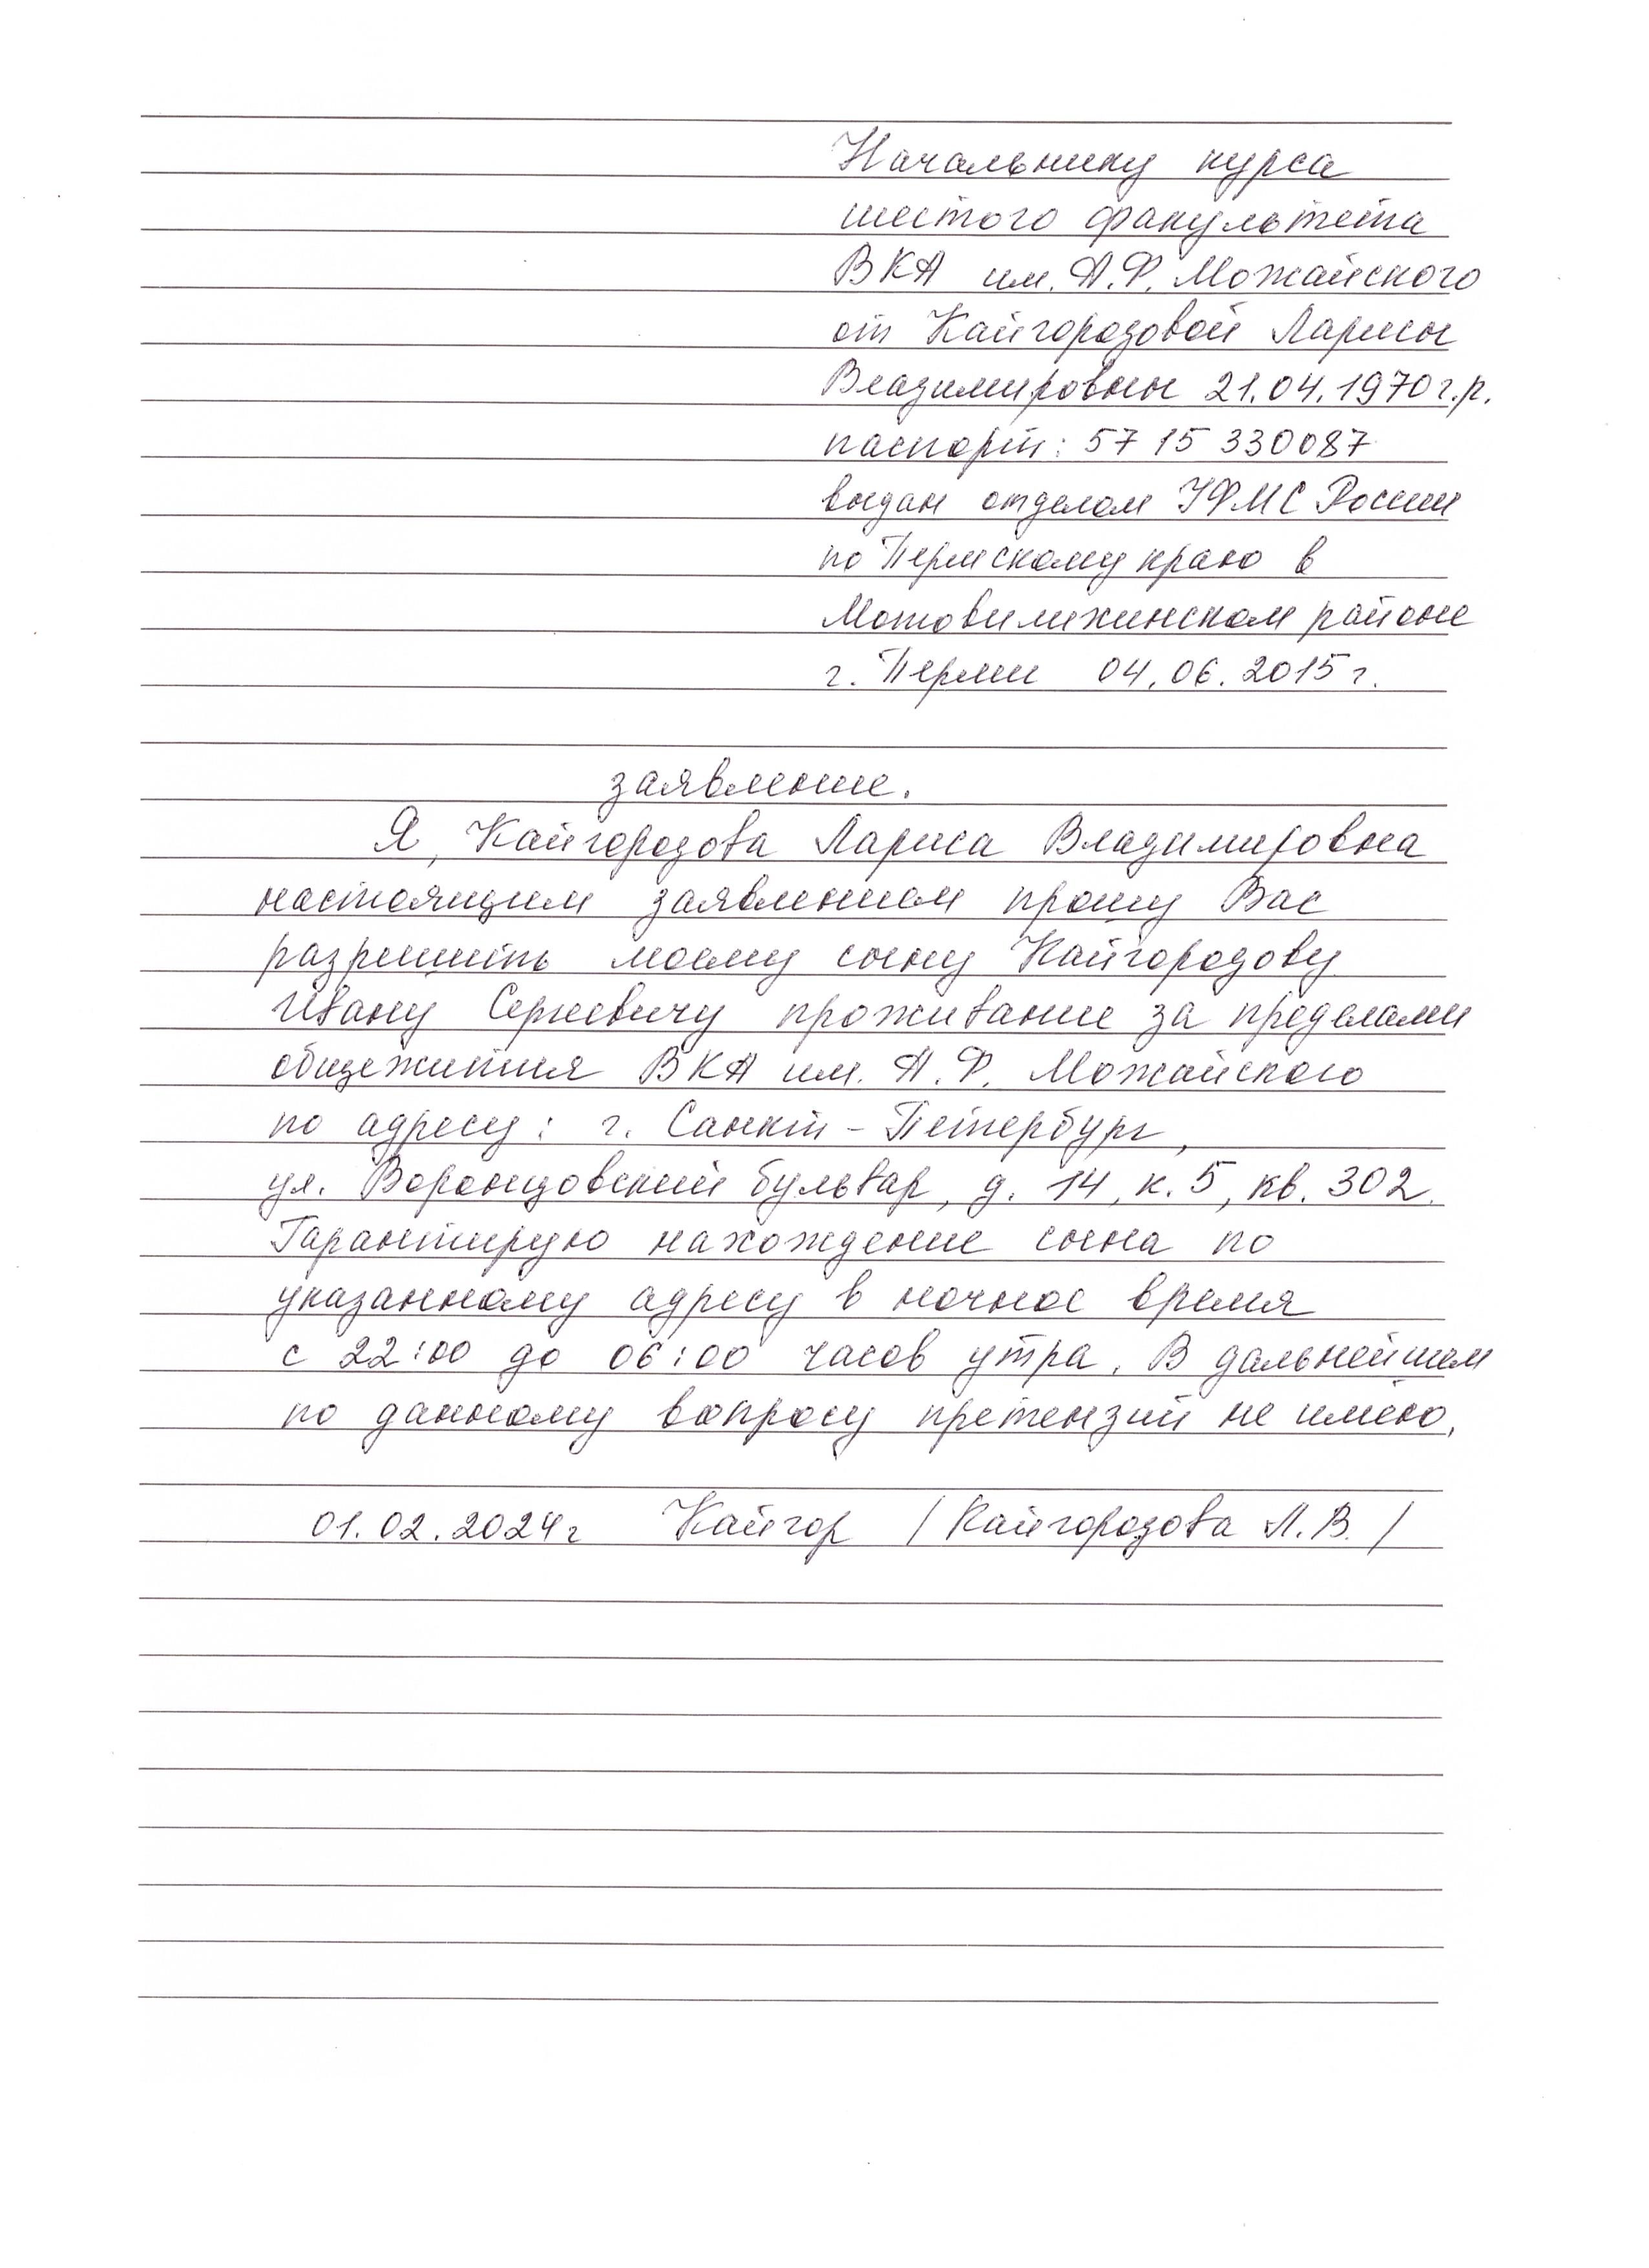 Начальнику курса
шестого факультета
ВКА им. А.Ф. Можайского
от Кайгородовой Ларисы
Владимировны 21.04.1970 г.р.
паспорт: 57 15 330087
выдан отделом УФМС России
по Пермскому краю в
Мотовилихинском районе
г. Перми 04.06.2015 г.
заявление.
Я, Кайгородова Лариса Владимировна
настоящим заявлением прошу Вас
разрешить моему сыну Кайгородову
Ивану Сергеевичу проживание за пределами
общежития ВКА им. А.Ф. Можайского
по адресу: г. Санкт-Петербург,
ул. Воронцовский бульвар, д. 14, к. 5, кв. 302.
Гарантирую нахождение сына по
указанному адресу в ночное время
с 22:00 до 06:00 часов утра. В дальнейшем
по данному вопросу претензий не имею.
01.02.2024 г Кайгор / Кайгородова Л.В. /